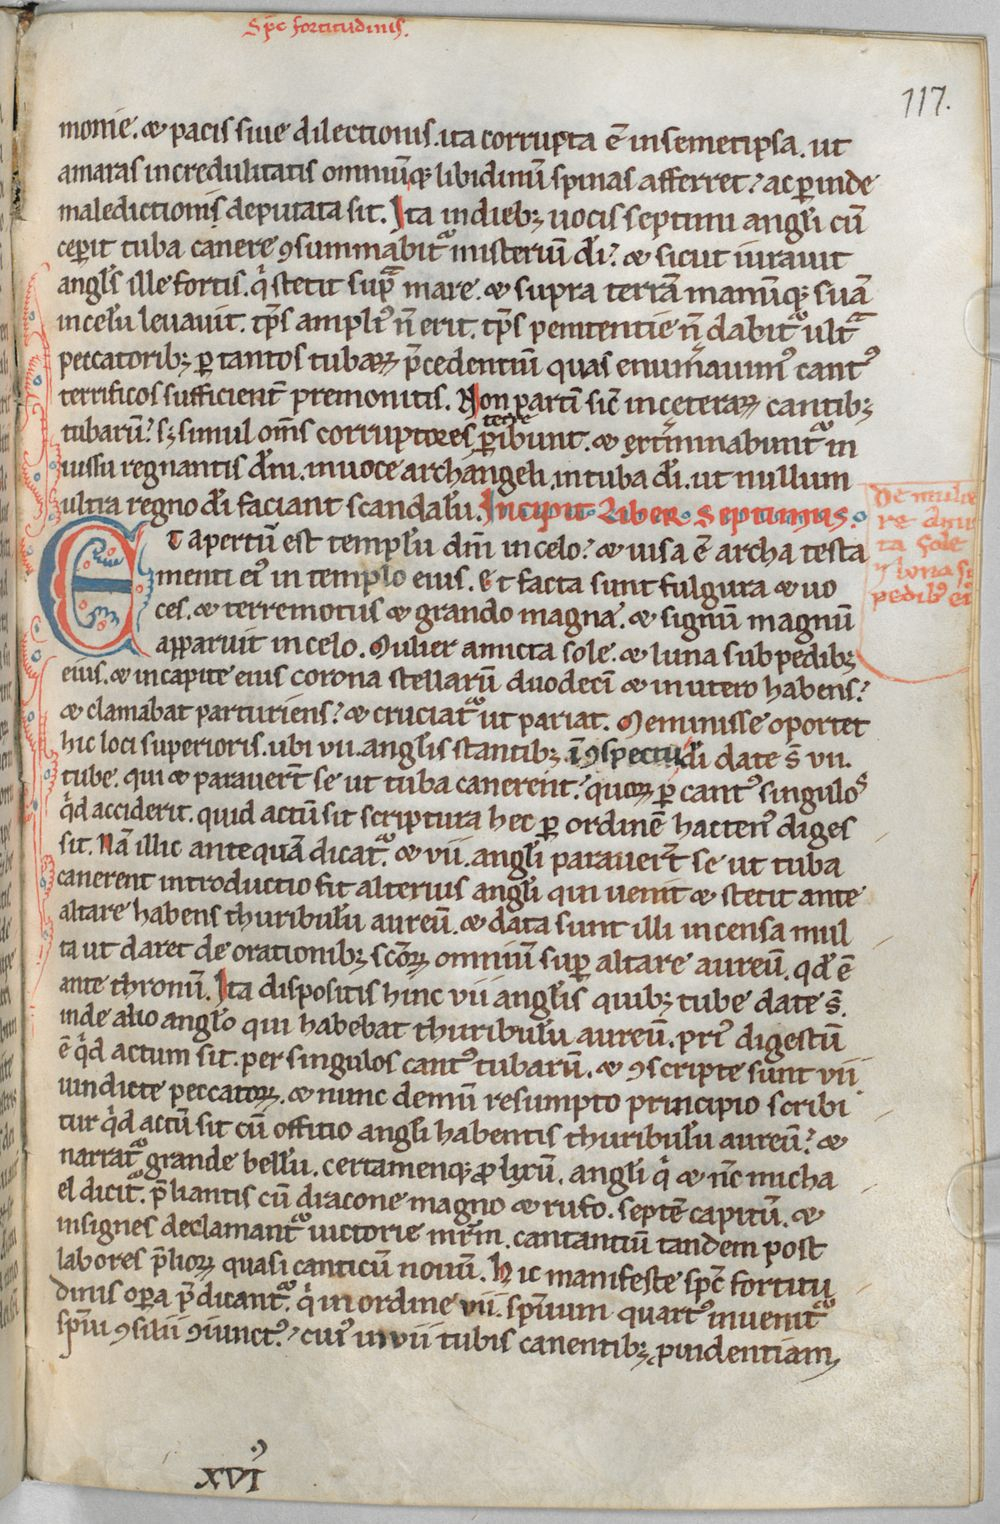 Sp̄c fortitudinis.
117.
monie. & pacis siue dilectionis. ita corrupta ē in semetipsa. ut
amaras incredulitatis omniumq; libidinū spinas afferret? ac ꝑinde
maledictionis deputata sit. Ita in dieb; uocis septimi angl̄i cū
ceꝑit tuba canere ꝯsummabit᷑ misteriū dī? & sicut iurauit
angl̄s ille fortis. q̇ stetit supͣ mare. & supra terrā manūq; suā
in celū leuauit. tp̄s ampliꝰ n̄ erit. tp̄s penitentie n̄ dabit᷑ ultͣ
peccatorib; ꝑ tantos tubaꝝ p̄cedentiū quas enum̄auimꝰ cantꝰ
terrificos sufficient̄ premonitis. Non ꝑtim sic̄ in ceteraꝝ cantib;
tubarū? s; simul om̄s corruptores terre ꝑibunt. & ext̄minabunt᷑ in
iussu regnantis dn̄i. in uoce archangeli, in tuba dī. ut nullum
ultra regno dī faciant scandalū. Incipit Liber Septimus.
De mulie
re amic
ta sole
⁊ luna s
pedibꝰ ei
Et apertū est templū dn̄i in celo? & uisa ē archa testa
menti eiꝰ in templo eius. Et facta sunt fulgura & uo
ces. & terremotus & grando magna. & signū magnū
apparuit in celo. Mulier amicta sole. & luna sub pedib;
eius. & in capite eius corona stellarū duodecī & in utero habens?
& clamabat parturiens? & cruciat᷑ ut pariat. Meminisse oportet
hic loci superioris. ubi vii. angl̄is stantib; ī ꝯspectu dī date s̄ vii.
tube. qui & parauer̄t se ut tuba canerent? quoꝝ ꝑ cantꝰ singulos
q̇d acciderit. quid actū sit scriptura hec ꝑ ordinē hactenꝰ diges
sit. Nā illic antequā dicat᷑. & vii. angl̄i parauer̄t se ut tuba
canerent introductio fit alterius angl̄i qui uenit & stetit ante
altare habens thuribulū aureū. & data sunt illi incensa mul
ta ut daret de orationib; sc̄oꝝ omniū suꝑ altare aureū. qd̄ ē
ante thronū. Ita dispositis hinc vii angl̄is quib; tube date s̄.
inde alio angl̄o qui habebat thuribulū aureū. priꝰ digestū
ē q̇d actum sit. per singulos cantꝰ tubarū. & ꝯscripte sunt vii
uindicte peccatoꝝ. & nunc demū resumpto principio scribi
tur q̇d actū sit cū officio angl̄i habentis thuribulū aureū? &
narrat᷑ grande bellū. certamenq; ꝓlixū. angl̄i q̇ & nc̄ micha
el dicit᷑. p̄liantis cū dracone magno & rufo. septē capitū. &
insignes declamant᷑ uictorie mr̄m. cantantiū tandem post
labores p̄lioꝝ quasi canticū nouū. Hic manifeste sp̄c fortitu
dinis oꝑa p̄dicant᷑. q̇ in ordine vii. sp̄uum quartꝰ inuenit᷑
sp̄iu ꝯsilii ꝯiunctꝰ? cuiꝰ in vii tubis canentib; ꝓuidentiam
XVI